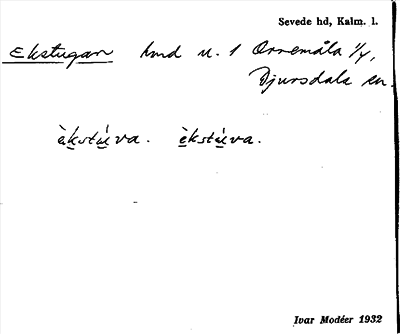 Sevede hd, Kalm. l.
Ekstugan hmd u. 1 Ornemåla 1/4,
Djursdala sn.
èkstúva. èkstúva.
Ivar Modéer 1932